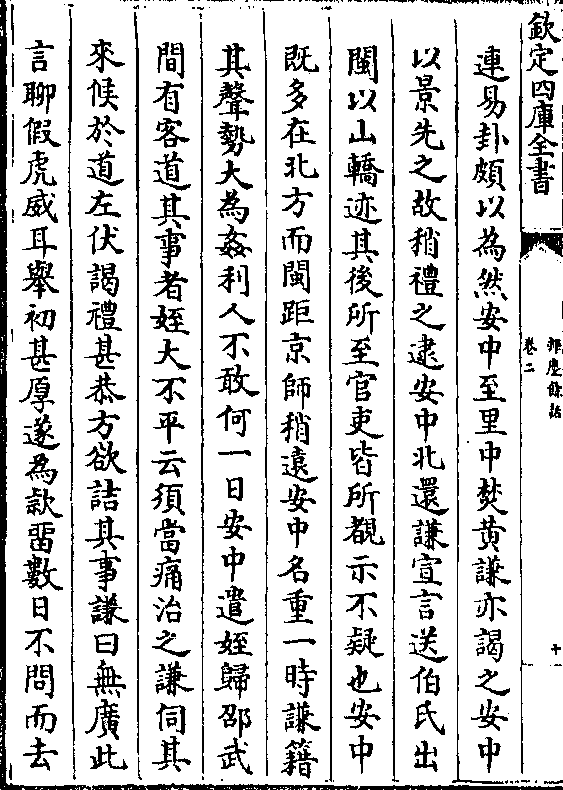 欽定四庫全書
揮麈餘話
卷二
十
連易卦頗以為然安中至里中焚黄謙亦謁之安中
以景先之故稍禮之逮安中北還謙宣言送伯氏出
閩以山轎迹其後所至官吏皆所覩示不疑也安中
既多在北方而閩距京師稍遠安中名重一時謙籍
其聲勢大為姦利人不敢何一日安中遣姪歸邵武
間有客道其事者姪大不平云須當痛治之謙伺其
來候於道左伏謁禮甚恭方欲詰其事謙曰無廣此
言聊假虎威耳舉初甚厚遂為欵畱數日不問而去